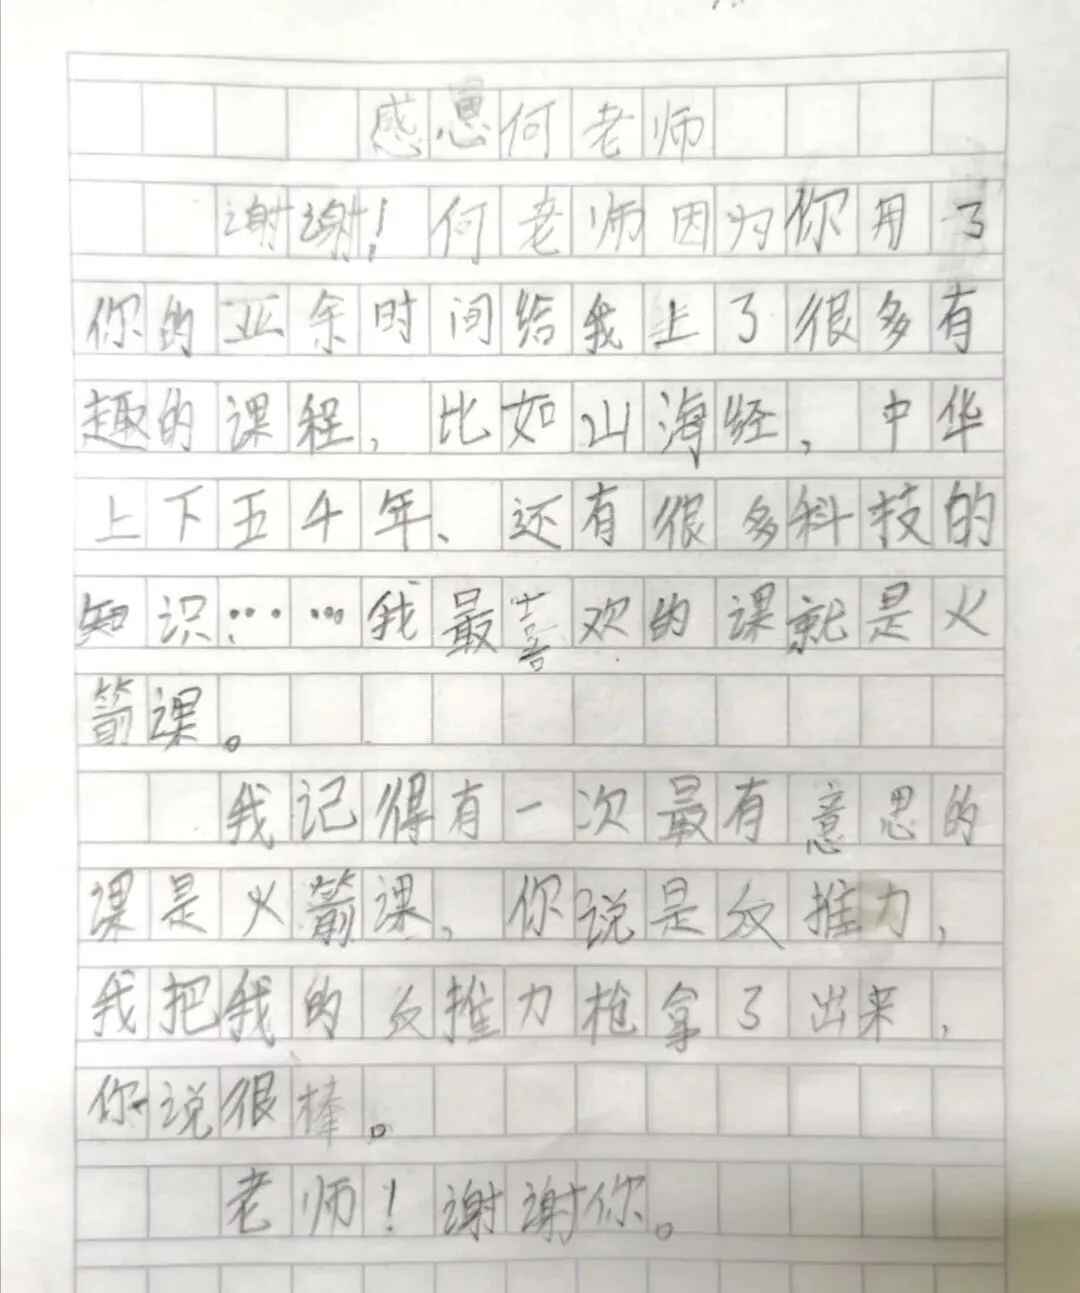 感恩何老师
谢谢！何老师因为你用了
你的亚余时间给我上了很多有
趣的课程，比如山海经，中华
上下五千年、还有很多科技的
知识……我最喜欢的课就是火
箭课。
我记得有一次最有意思的
课是火箭课，你说是反推力，
我把我的反推力枪拿了出来，
你说很棒。
老师！谢谢你。